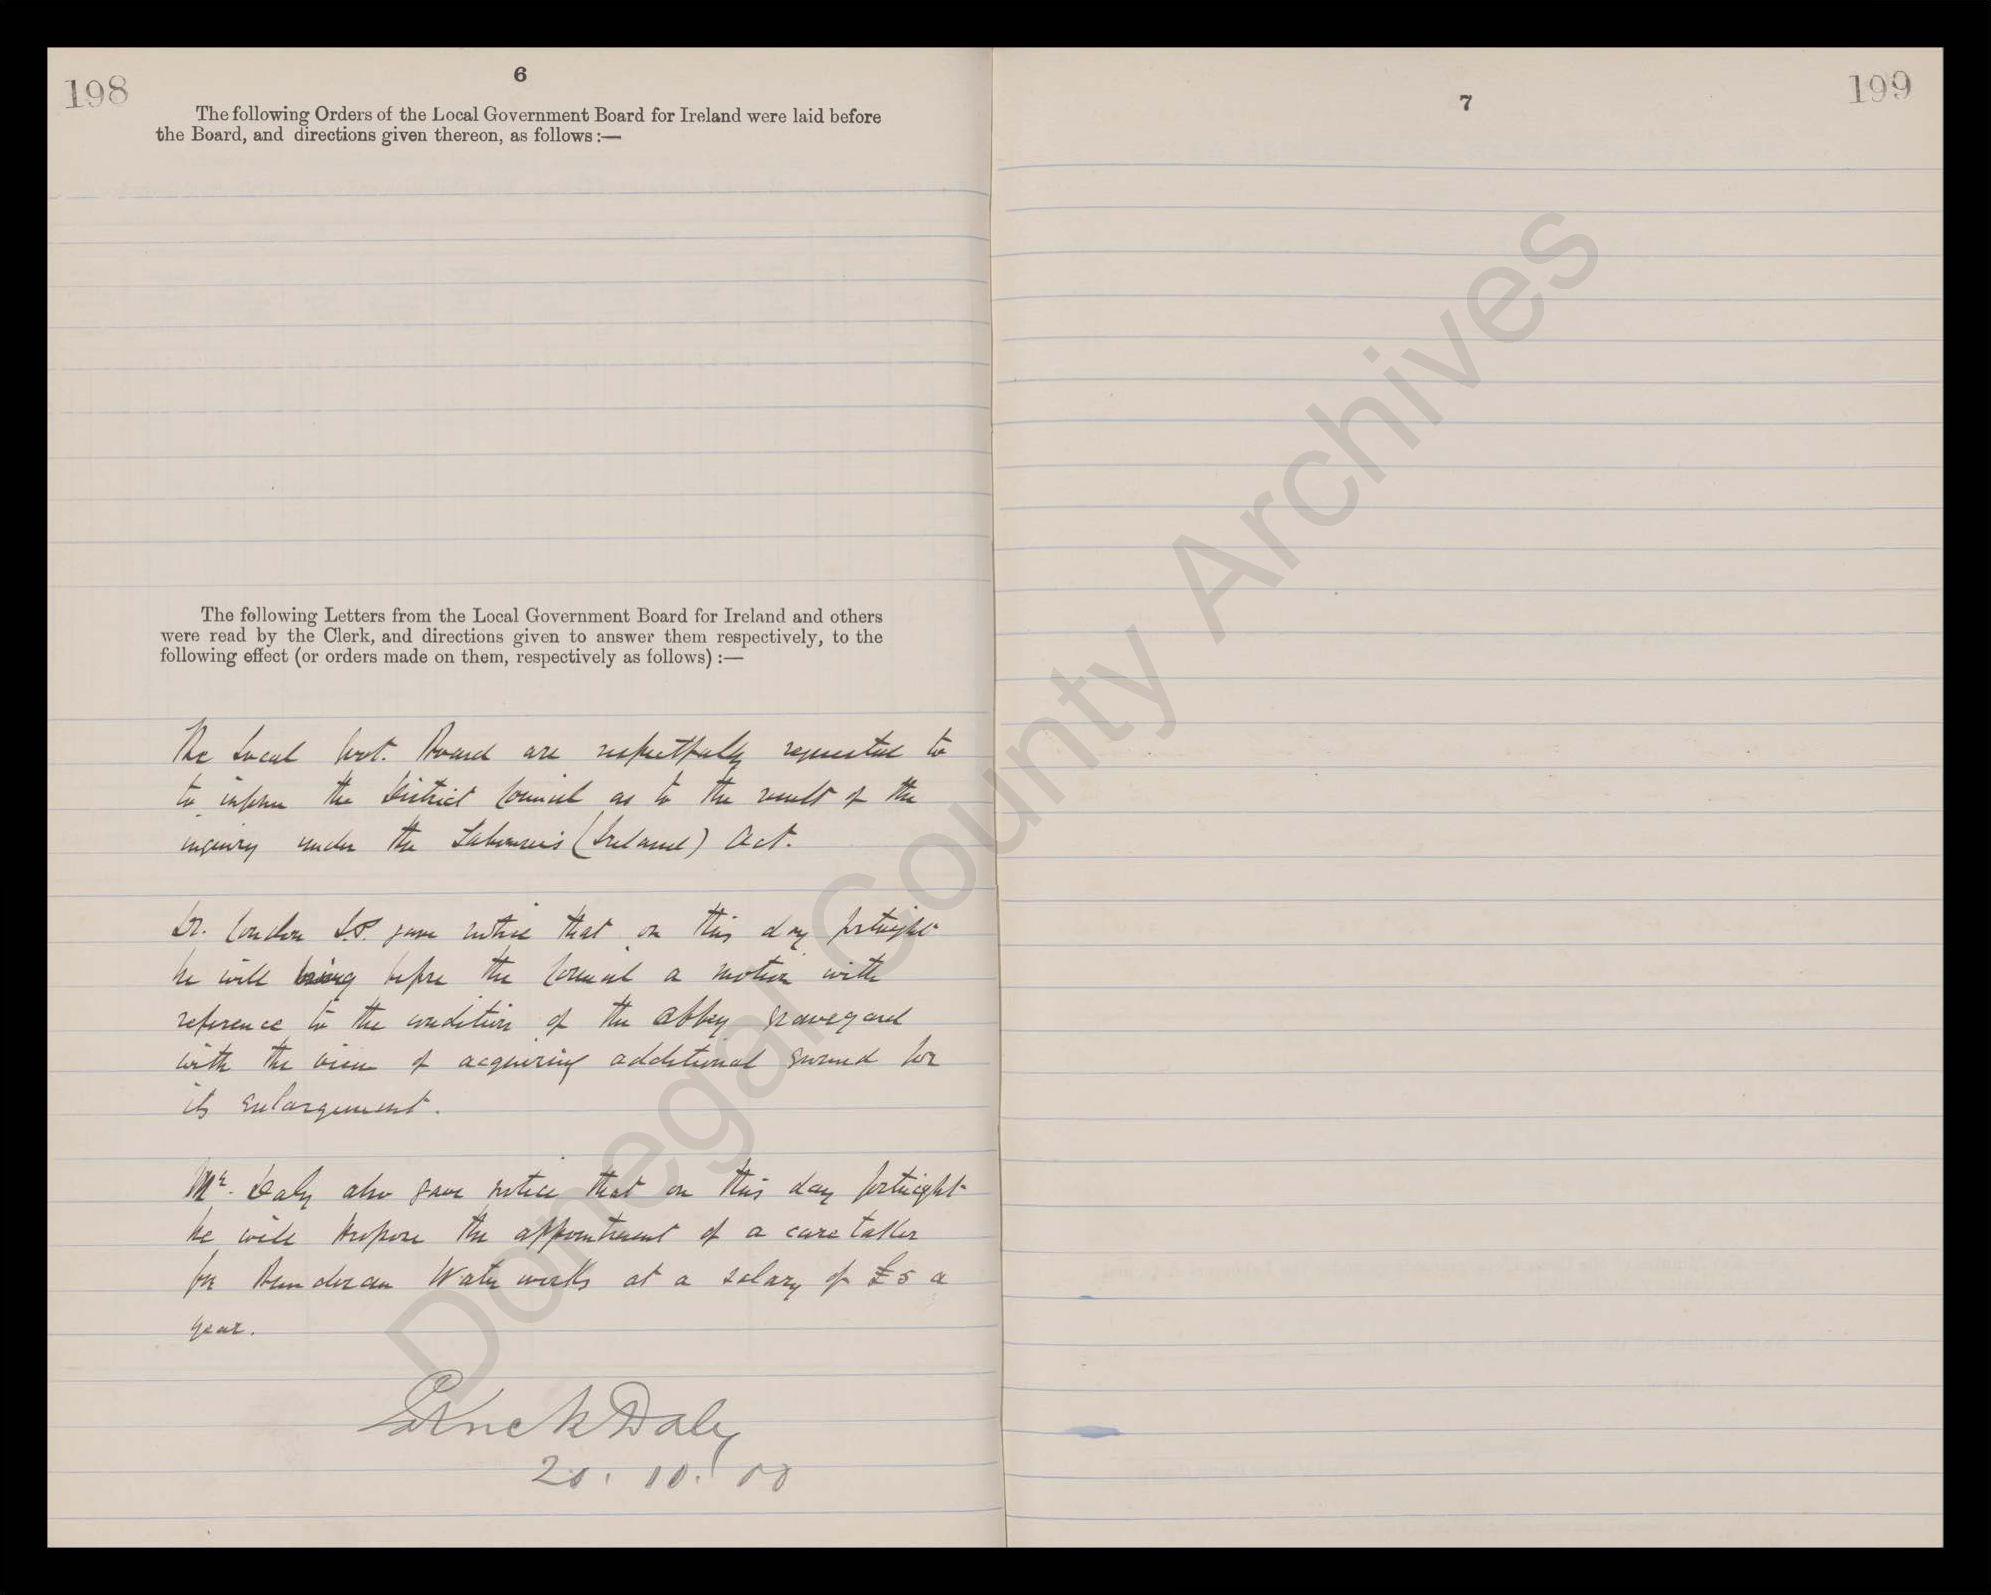 198
6
The following Orders of the Local Government Board for Ireland were laid before
the Board, and directions given thereon, as follows :—
The following Letters from the Local Government Board for Ireland and others
were read by the Clerk, and directions given to answer them respectively, to the
following effect (or orders made on them, respectively as follows) :—
The Local Govt. Board are respectfully requested to
to inform the District Council as to the result of the
inquiry under the Labourers (Ireland) Act.
Dr. Condon J.P. gave notice that on this day fortnight
he will bring before the Council a motion with
reference to the condition of the Abbey graveyard
with the view of acquiring additional ground for
its enlargement.
Mr. Daly also gave notice that on this day fortnight
he will propose the appointment of a care taker
for Bundoran Water works at a salary of £5 a
year.
Patrick Daly
20. 10. 00
7
199
Donegal County Archives